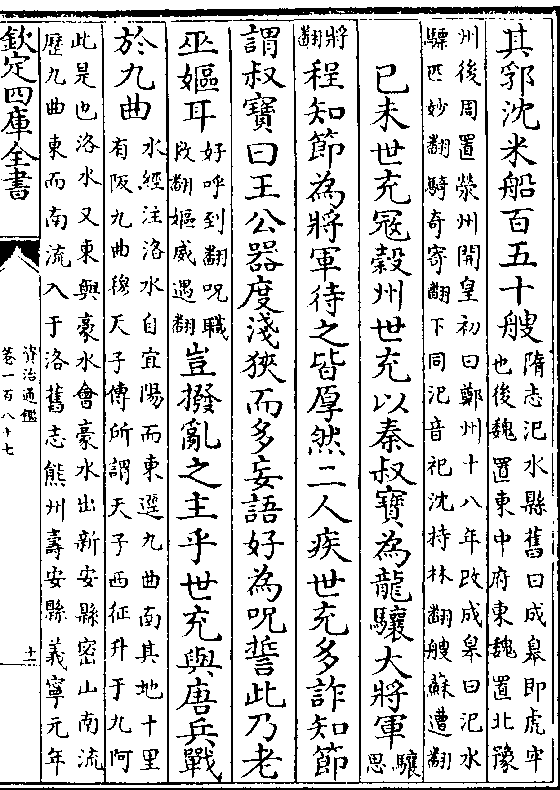 其郛沈米船百五十艘隋志汜水縣舊曰成臯即虎牢也後魏置東中府東魏置北豫
州後周置滎州開皇初曰鄭州十八年改成臯曰汜水驃匹妙翻騎奇寄翻下同汜音祀沈持林翻艘蘇遭翻
已未世充冦穀州世充以秦叔寶為龍驤大將軍驤思
將翻程知節為將軍待之皆厚然二人疾世充多詐知節
謂叔寶曰王公器度淺狹而多妄語好為呪誓此乃老
巫嫗耳好呼到翻呪職救翻嫗威遇翻豈撥亂之主乎世充與唐兵戰
於九曲水經注洛水自宜陽而東逕九曲南其地十里有阪九曲穆天子傳所謂天子西征升于九阿
此是也洛水又東與豪水會豪水出新安縣密山南流歷九曲東而南流入于洛舊志熊州壽安縣義寧元年
欽定四庫全書
資治通鑑
卷一百八十七
十二